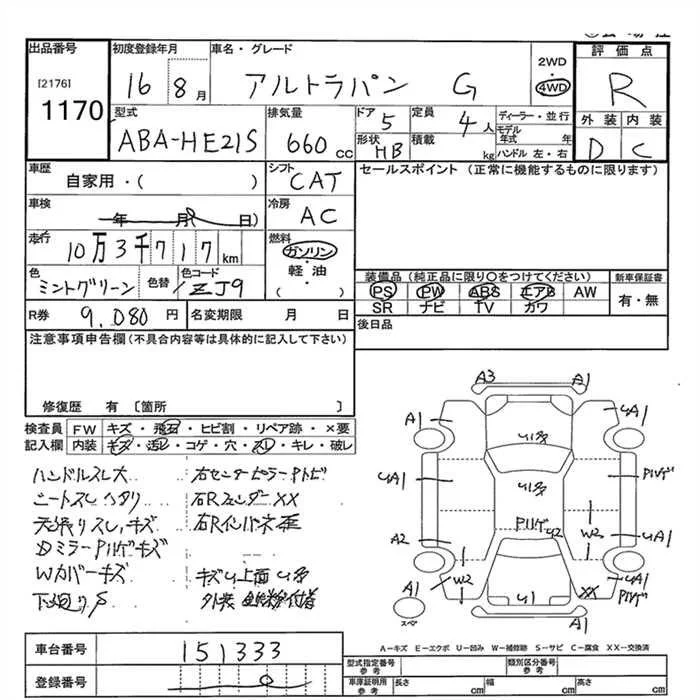 出品番号
[2176]
1170
初度登録年月
16 8月
車名・グレード
アルトラパン G
2WD
4WD
評価点
R
型式
ABA-HE21S
排気量
660cc
ドア
5
定員
4人
形状
HB
積載
kg
ディーラー・並行
モデル年式 年
ハンドル 左・右
外装 内装
D C
車歴
自家用・( )
シフト
CAT
セールスポイント (正常に機能するものに限ります)
車検
年 月 日)
冷房
AC
走行
10万3千717km
燃料
ガソリン
・
軽油
( )
色
ミントグリーン
色替
色コード
ZJ9
装備品(純正品に限り○をつけてください)
PS PW ABS エアB AW
SR ナビ TV カワ
新車保証書
有・無
R券
9.080円
名変期限 月 日
後日品
注意事項申告欄(不具合内容等は具体的に記入して下さい)
修復歴 有 〔箇所 〕
検査員記入欄
FW キズ・飛石・ヒビ割・リペア跡・×要
内装 キズ・汚レ・コゲ・穴・スレ・キレ・破レ
ハンドルスレ大
シートスレ ヘタリ
天張りスレ、キズ
DミラーPハゲキズ
Wカバーキズ
下廻りS
右センターピラーPトビ
右RフェンダーXX
右Rインパネ歪
キズU上面U多
A3
A1
A1
U多
UA1
UA1
U多
Pハゲ
Pハゲ
U2
A2
W2
UA1
W2
XX
UA1
Pハゲ
A1
スペ
U1
A1
A−キズ E−エクボ U−凹み W−補修跡 S−サビ C−腐食 XX−交換済
車台番号
151333
登録番号
型式指定番号
参考
類別区分番号
参考
車庫証明用
参考
長さ cm
幅 cm
高さ cm